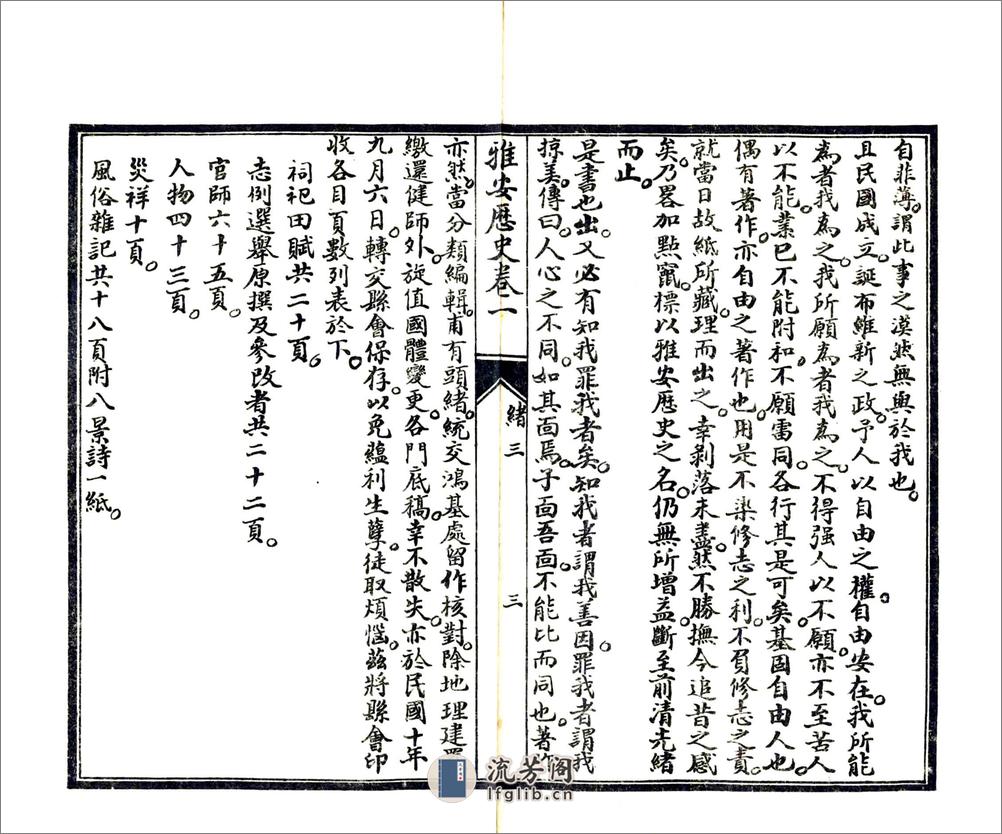 自菲薄。謂此事之漠然無與於我也。
且民國成立。誕布維新之政。予人以自由之權。自由安在。我所能
為者我為之。我所願為者我為之。不得强人以不願。亦不至苦人
以不能。業已不能附和。不願雷同。各行其是可矣。基固自由人也。
偶有著作。亦自由之著作也。用是不染修志之利。不負修志之責。
就當日故紙所藏。理而出之。幸剥落未盡。然不勝撫今追昔之感
矣。乃畧加點竄。標以雅安歷史之名。仍無所增益。斷至前清光緒
而止。
是書也出。又必有知我罪我者矣。知我者謂我善因。罪我者謂我
掠美。傳曰。人心之不同。如其面焉。子面吾面。不能比而同也。著作
雅安歷史卷二
緒三
三
亦然。當分類編輯。甫有頭緒。統交鴻基處留作核對。除地理建置
繳還健師外。旋值國體變更。各門底稿。幸不散失。亦於民國十年
九月六日。轉交縣會保存。以免蘊利生孽。徒取煩惱。兹將縣會印
收各目頁數列表於下。
祠祀田賦共二十頁。
志例選舉原撰及參改者共二十二頁。
官師六十五頁。
人物四十三頁。
災祥十頁。
風俗雜記共十八頁附八景詩一紙。
流芳阁
lfglib.cn